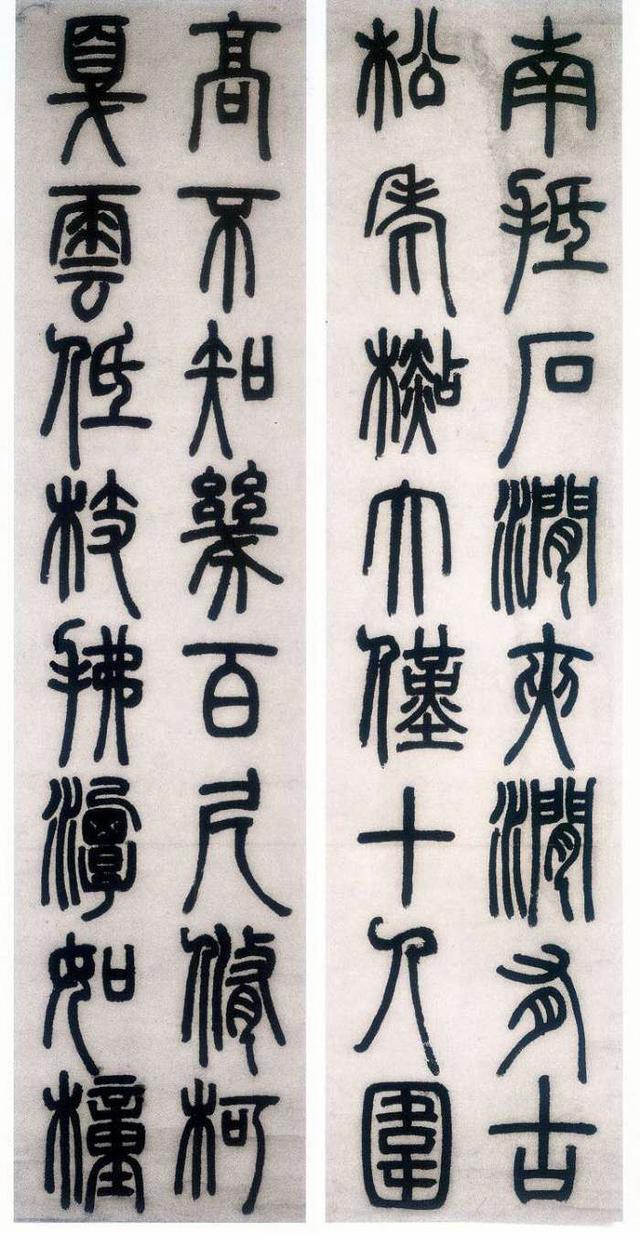 南抵石澗夾澗有古
松老檆大僅十人圍
高不知幾百尺修柯
戛雲低枝拂潭如橦